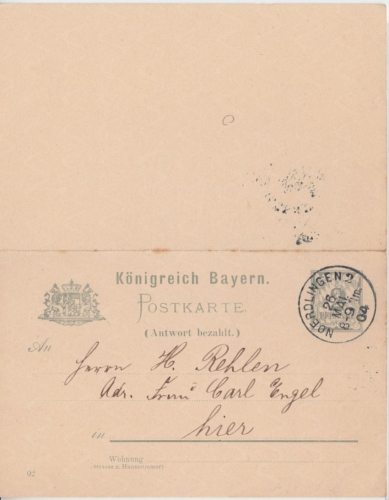 Königreich Bayern.
POSTKARTE.
(Antwort bezahlt.)
NOERDLINGEN 2
25
MAI
8-9 Vm.
04
An
Herrn H. Rehlen
Adr. Frau Carl Engel
in hier
Wohnung
(Strasse u. Hausnummer)
02